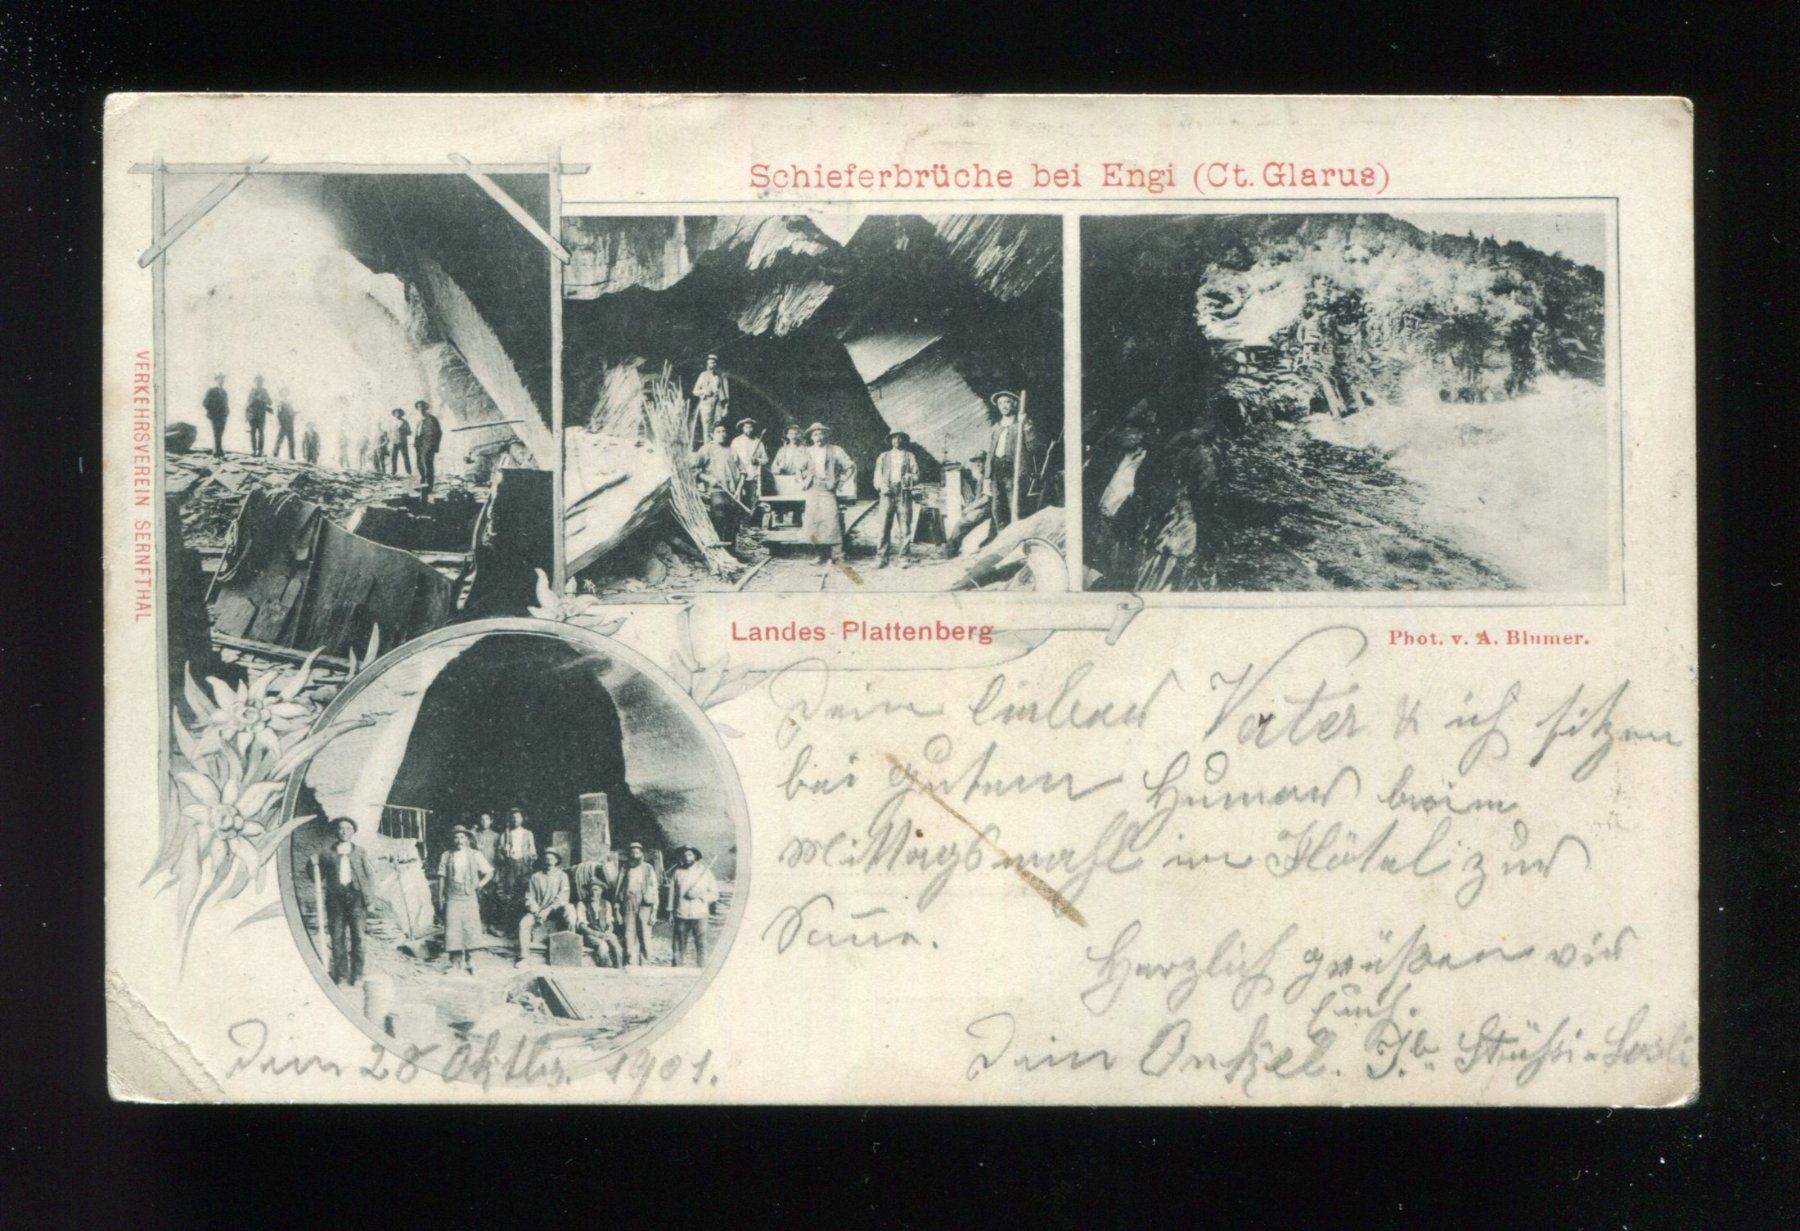 Schieferbrüche bei Engi (Ct. Glarus)
VERKEHRSVEREIN SERNFTHAL
Landes-Plattenberg
Phot. v. A. Blumer.
Dein lieber Vater & ich sitzen
bei gutem Humor beim
Mittagsmahl im Hôtel zur
Sonne.
Herzlich grüßen wir
Euch.
Dein Onkel. Jb. Stüssi-
28 Oktbr. 1901.